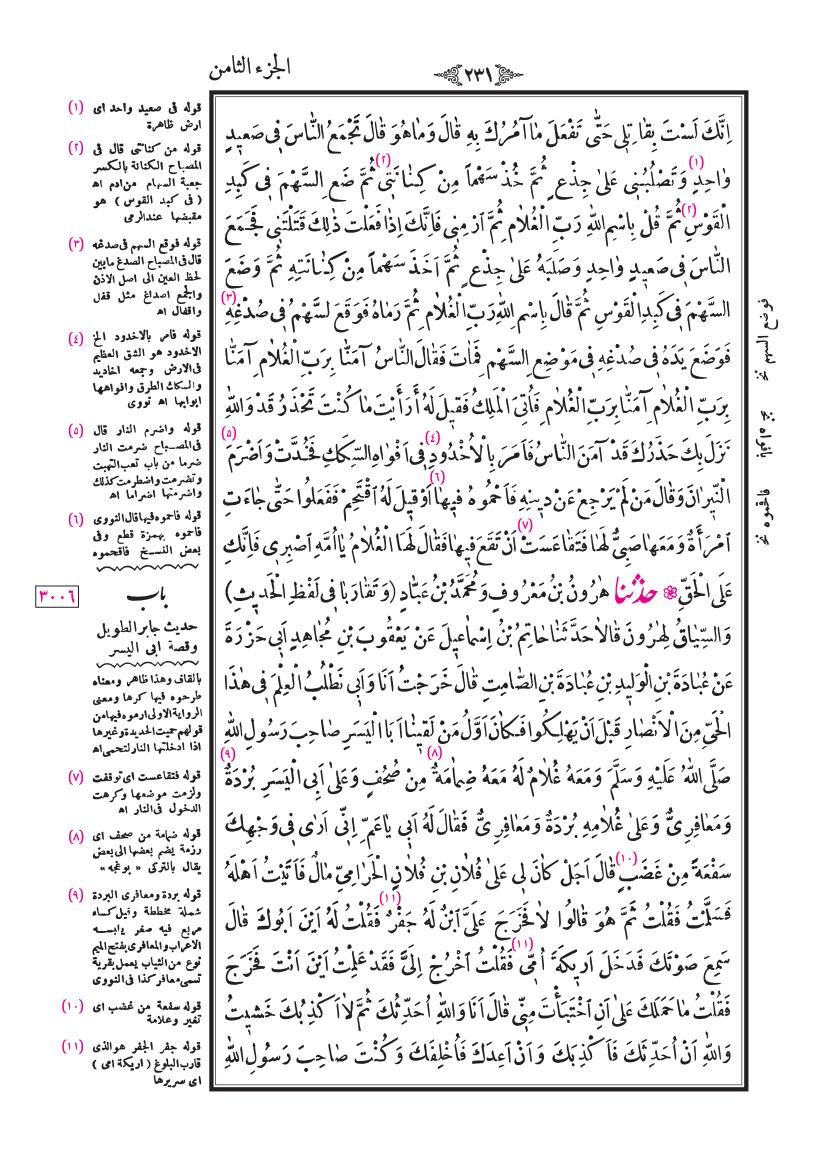 الجزء الثامن
٢٣١
اِنَّكَ لَسْتَ بِقَاتِلِى حَتّٰى تَفْعَلَ مَا آمُرُكَ بِهِ قَالَ وَمَا هُوَ قَالَ تَجْمَعُ النَّاسَ فِى صَعِيدٍ
وَاحِدٍ (١) وَتَصْلُبُنِى عَلىٰ جِذْعٍ ثُمَّ خُذْ سَهْماً مِنْ كِنَانَتِى (٢) ثُمَّ ضَعِ السَّهْمَ فِى كَبِدِ
الْقَوْسِ (٢) ثُمَّ قُلْ بِاسْمِ اللهِ رَبِّ الْغُلَامِ ثُمَّ ارْمِنِى فَاِنَّكَ اِذَا فَعَلْتَ ذٰلِكَ قَتَلْتَنِى فَجَمَعَ
النَّاسَ فِى صَعِيدٍ وَاحِدٍ وَصَلَبَهُ عَلىٰ جِذْعٍ ثُمَّ اَخَذَ سَهْماً مِنْ كِنَانَتِهِ ثُمَّ وَضَعَ
السَّهْمَ فِى كَبِدِ الْقَوْسِ ثُمَّ قَالَ بِاسْمِ اللهِ رَبِّ الْغُلَامِ ثُمَّ رَمَاهُ فَوَقَعَ لسَّهْمُ فِى صُدْغِهِ (٣)
فَوَضَعَ يَدَهُ فِى صُدْغِهِ فِى مَوْضِعِ السَّهْمِ فَمَاتَ فَقَالَ النَّاسُ آمَنَّا بِرَبِّ الْغُلَامِ آمَنَّا
بِرَبِّ الْغُلَامِ آمَنَّا بِرَبِّ الْغُلَامِ فَاُتِىَ الْمَلِكُ فَقِيلَ لَهُ أَرَأَيْتَ مَا كُنْتَ تَحْذَرُ قَدْ وَاللهِ
نَزَلَ بِكَ حَذَرُكَ قَدْ آمَنَ النَّاسُ فَاَمَرَ بِالْاُخْدُودِ (٤) فِى اَفْوَاهِ السِّكَكِ فَخُدَّتْ وَاَضْرَمَ (٥)
النِّيرَانَ وَقَالَ مَنْ لَمْ يَرْجِعْ عَنْ دِينِهِ فَاَحْمُوهُ فِيهَا (٦) اَوْ قِيلَ لَهُ اقْتَحِمْ فَفَعَلُوا حَتّٰى جَاءَتِ
امْرَأَةٌ وَمَعَهَا صَبِىٌّ لَهَا فَتَقَاعَسَتْ (٧) اَنْ تَقَعَ فِيهَا فَقَالَ لَهَا الْغُلَامُ يَا اُمَّهِ اصْبِرِى فَاِنَّكِ
عَلَى الْحَقِّ حَدَّثَنَا هٰرُونُ بْنُ مَعْرُوفٍ وَمُحَمَّدُ بْنُ عَبَّادٍ (وَتَقَارَبَا فِى لَفْظِ الْحَدِيثِ)
وَالسِّيَاقُ لِهٰرُونَ قَالَا حَدَّثَنَا حَاتِمُ بْنُ اِسْمَاعِيلَ عَنْ يَعْقُوبَ بْنِ مُجَاهِدٍ اَبِى حَزْرَةَ
عَنْ عُبَادَةَ بْنِ الْوَلِيدِ بْنِ عُبَادَةَ بْنِ الصَّامِتِ قَالَ خَرَجْتُ اَنَا وَاَبِى نَطْلُبُ الْعِلْمَ فِى هٰذَا
الْحَىِّ مِنَ الْاَنْصَارِ قَبْلَ اَنْ يَهْلِكُوا فَكَانَ اَوَّلُ مَنْ لَقِينَا اَبَا الْيَسَرِ صَاحِبَ رَسُولِ اللهِ
صَلَّى اللهُ عَلَيْهِ وَسَلَّمَ وَمَعَهُ غُلَامٌ لَهُ مَعَهُ ضِمَامَةٌ (٨) مِنْ صُحُفٍ وَعَلىٰ اَبِى الْيَسَرِ بُرْدَةٌ (٩)
وَمَعَافِرِىٌّ وَعَلىٰ غُلَامِهِ بُرْدَةٌ وَمَعَافِرِىٌّ فَقَالَ لَهُ اَبِى يَاعَمِّ اِنِّى اَرٰى فِى وَجْهِكَ
سَفْعَةً مِنْ غَضَبٍ (١٠) قَالَ اَجَلْ كَانَ لِى عَلىٰ فُلَانِ بْنِ فُلَانٍ الْحَرَامِىِّ مَالٌ فَاَتَيْتُ اَهْلَهُ
فَسَلَّمْتُ فَقُلْتُ ثَمَّ هُوَ قَالُوا لَا فَخَرَجَ عَلَىَّ ابْنٌ لَهُ جَفْرٌ (١١) فَقُلْتُ لَهُ اَيْنَ اَبُوكَ قَالَ
سَمِعَ صَوْتَكَ فَدَخَلَ اَرِيكَةَ اُمِّى (١١) فَقُلْتُ اخْرُجْ اِلَىَّ فَقَدْ عَلِمْتُ اَيْنَ اَنْتَ فَخَرَجَ
فَقُلْتُ مَا حَمَلَكَ عَلىٰ اَنِ اخْتَبَأْتَ مِنِّى قَالَ اَنَا وَاللهِ اُحَدِّثُكَ ثُمَّ لَا اَكْذِبُكَ خَشِيتُ
وَاللهِ اَنْ اُحَدِّثَكَ فَاَكْذِبَكَ وَاَنْ اَعِدَكَ فَاُخْلِفَكَ وَكُنْتَ صَاحِبَ رَسُولِ اللهِ
فوضع السهم نخ
بافواه نخ
فاقحموه نخ
(١) قوله فى صعيد واحد اى
ارض ظاهرة
(٢) قوله من كنانتى قال فى
المصباح الكنانة بالكسر
جعبة السهام من ادم اه
( فى كبد القوس ) هو
مقبضها عندالرمى
(٣) قوله فوقع السهم فى صدغه
قال فى المصباح الصدغ مابين
لحظ العين الى اصل الاذن
والجمع اصداغ مثل قفل
واقفال اه
(٤) قوله فامر بالاخدود الخ
الاخدود هو الشق العظيم
فى الارض وجمعه اخاديد
والسكك الطرق وافواهها
ابوابها اه نووى
(٥) قوله واضرم النار قال
فى المصباح ضرمت النار
ضرما من باب تعب التهبت
وتضرمت واضطرمت كذلك
واضرمتها اضراما اه
(٦) قوله فاحموه فيها قال النووى
فاحموه بهمزة قطع وفى
بعض النسخ فاقحموه
٣٠٠٦
باب
حديث جابر الطويل
وقصة ابى اليسر
بالقاف وهذا ظاهر ومعناه
طرحوه فيها كرها ومعنى
الرواية الاولى ارموه فيها من
قولهم حميت الحديدة وغيرها
اذا ادخلتها النار لتحمى اه
(٧) قوله فتقاعست اى توقفت
ولزمت موضعها وكرهت
الدخول فى النار اه
(٨) قوله ضمامة من صحف اى
رزمة يضم بعضها الى بعض
يقال بالتركى « بوغچه »
(٩) قوله بردة ومعافرى البردة
شملة مخططة وقيل كساء
مربع فيه صفر يلبسه
الاعراب والمعافرى بفتح الميم
نوع من الثياب يعمل بقرية
تسمى معافر كذا فى النووى
(١٠) قوله سفعة من غضب اى
تغير وعلامة
(١١) قوله جفر الجفر هوالذى
قارب البلوغ ( اريكة امى )
اى سريرها